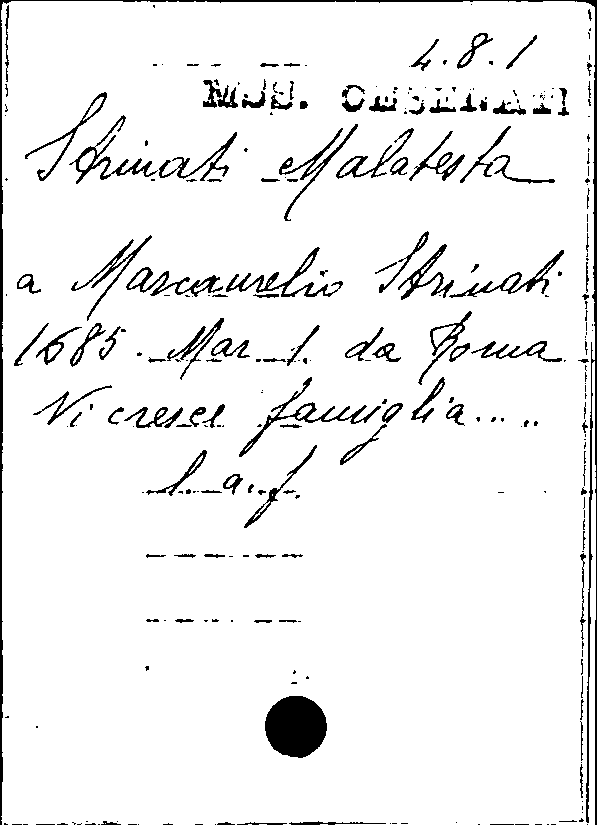 4.8.1
MSS. CESENATI
Strinati Malatesta
a Marcaurelio Strinati
1685. Mar 1. da Roma
Vi cresce famiglia.....
l. a. f.